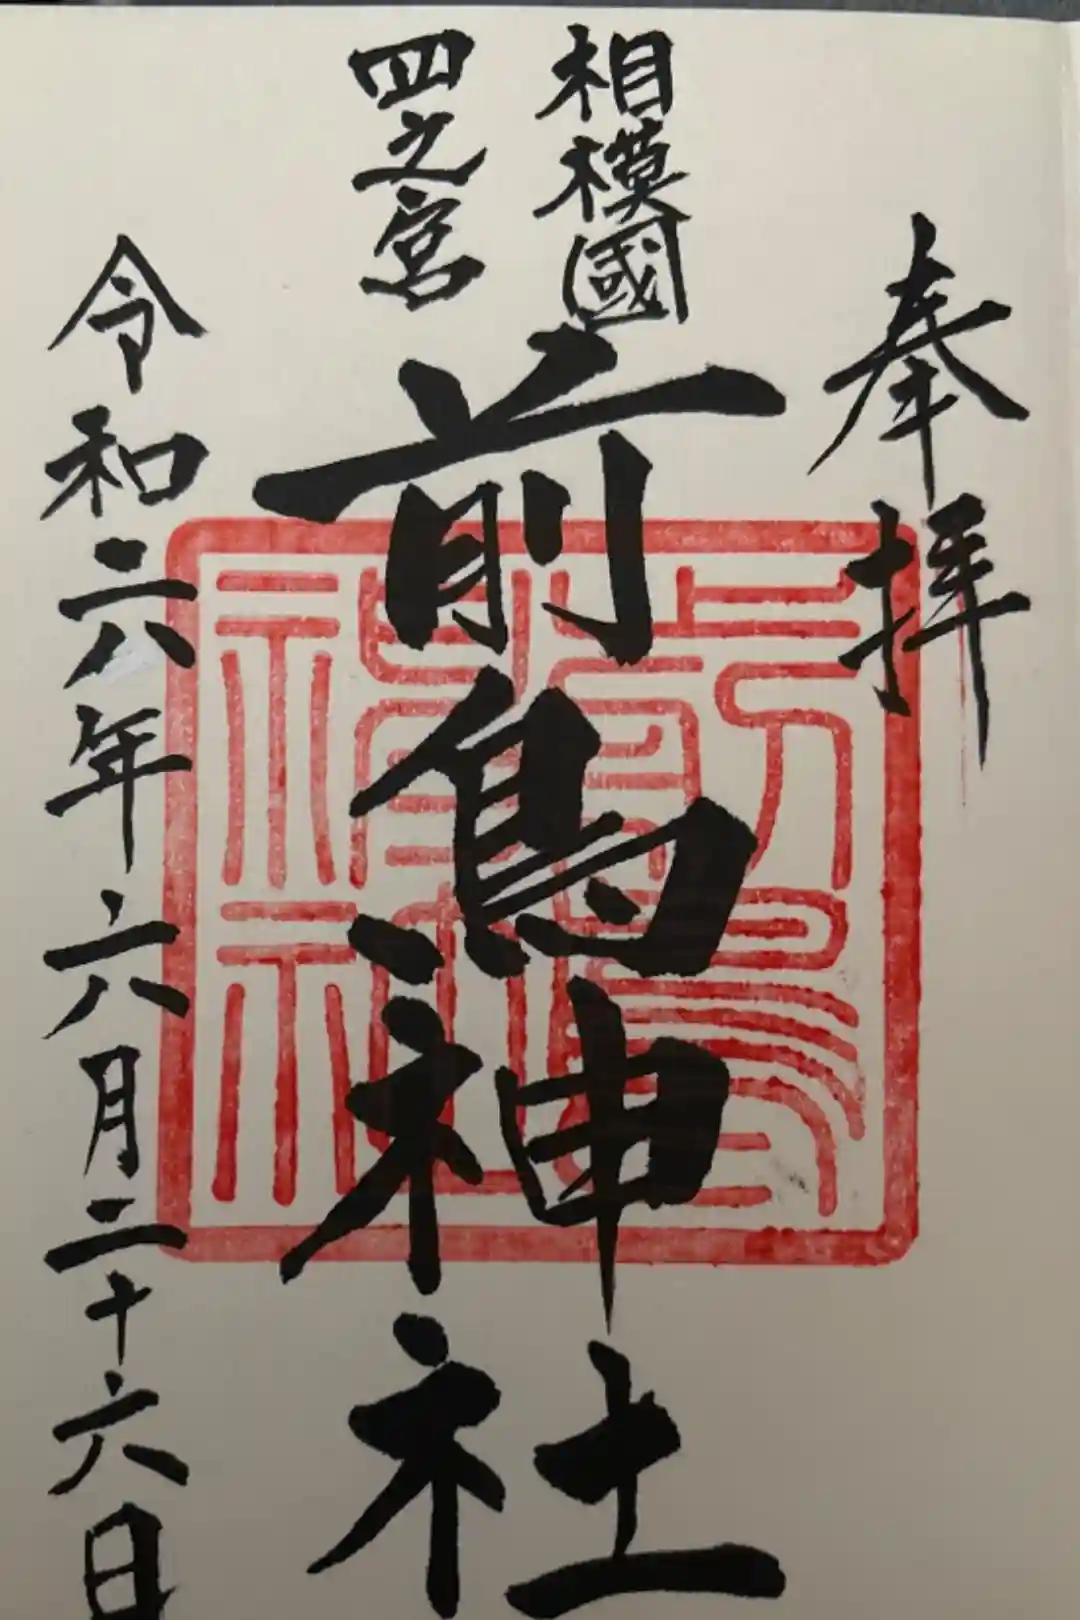 奉拝
相模國
四之宮
前鳥神社
前鳥神社
令和六年六月二十六日